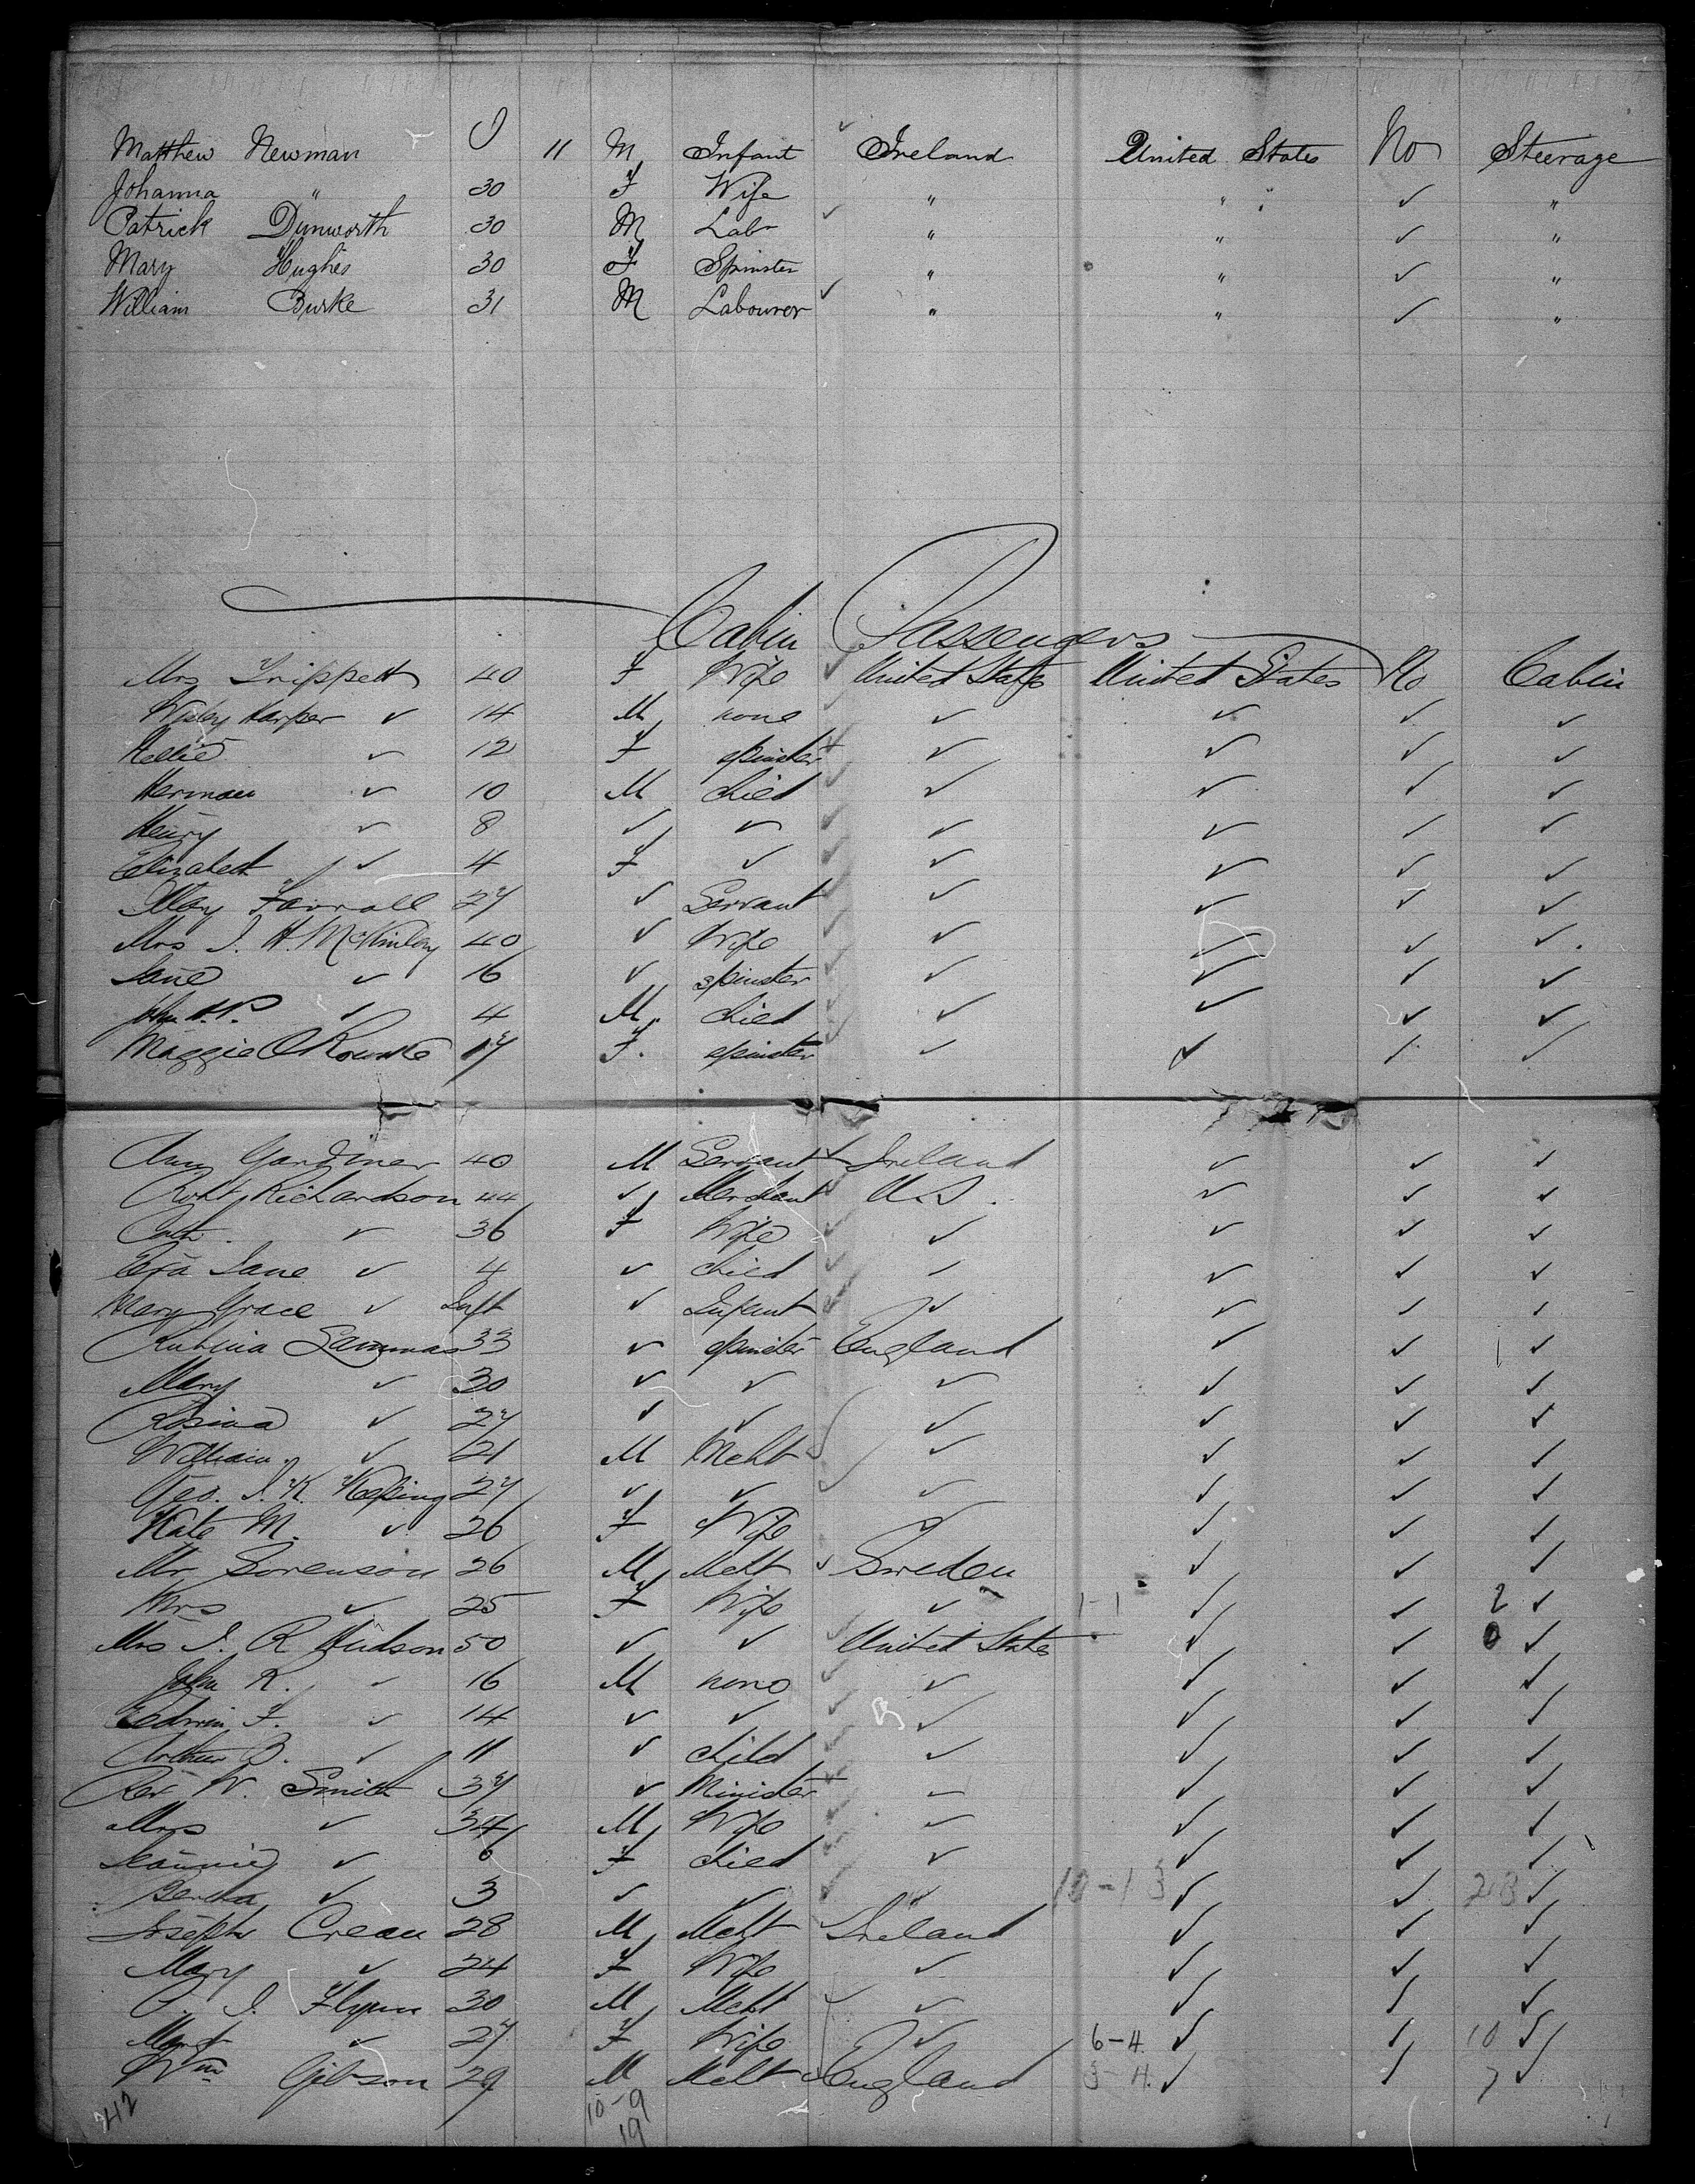 Matthew Newman 0 11 M Infant Ireland United States No Steerage
Johanna " 30 F Wife " " ✓ "
Patrick Dunworth 30 M Labr ✓ " " ✓ "
Mary Hughes 30 F Spinster " " ✓ "
William Burke 31 M Labourer ✓ " " ✓ "
Cabin Passengers
Mrs Trippett 40 F Wife ✓ United States United States No Cabin
Harper ✓ 14 M none ✓ ✓ ✓ ✓
Nellie ✓ 12 F spinster ✓ ✓ ✓ ✓
Herman ✓ 10 M child ✓ ✓ ✓ ✓
Henry ✓ 8 ✓ ✓ ✓ ✓ ✓ ✓
Elizabeth ✓ 4 F ✓ ✓ ✓ ✓ ✓
May Farrall 27 ✓ Servant ✓ ✓ ✓ ✓
Mrs J. H. McKinley 40 ✓ Wife ✓ ✓ ✓ ✓
Jane ✓ 16 ✓ spinster ✓ ✓ ✓ ✓
John ✓ 4 M. child ✓ ✓ ✓ ✓
Maggie O'Rourke 17 F. spinster ✓ ✓ ✓ ✓
Amy Gardiner 40 M Servant ✓ Ireland ✓ ✓ ✓
Robt Richardson 44 ✓ Merchant U.S. ✓ ✓ ✓
Cath. ✓ 36 F Wife ✓ ✓ ✓ ✓
Eva Jane ✓ 4 ✓ child ✓ ✓ ✓ ✓
Mary Grace ✓ Inft ✓ Infant ✓ ✓ ✓ ✓
Rubina Lammas 33 ✓ spinster England ✓ ✓ ✓
Mary ✓ 30 ✓ ✓ ✓ ✓ ✓ ✓
Rosina ✓ 27 ✓ ✓ ✓ ✓ ✓ ✓
William ✓ 21 M Meht ✓ ✓ ✓ ✓
Geo. J. K. 27 ✓ ✓ ✓ ✓ ✓ ✓
Kate M. ✓ 26 F Wife ✓ ✓ ✓ ✓
Mr Sorenson 26 M Meht ✓ Sweden ✓ ✓ ✓
Mrs ✓ 25 F Wife ✓ 1-1 ✓ ✓ 2 ✓
Mrs J. R Hudson 50 ✓ ✓ United States ✓ ✓ 0 ✓
John R. ✓ 16 M none ✓ ✓ ✓ ✓
Edwin F. ✓ 14 ✓ ✓ ✓ ✓ ✓ ✓
Arthur B. ✓ 11 ✓ child ✓ ✓ ✓ ✓
Rev W. Smith 37 ✓ Minister ✓ ✓ ✓ ✓
Mrs ✓ 34 M Wife ✓ ✓ ✓ ✓
Jeannie ✓ 6 F child ✓ ✓ ✓ ✓
Bertha ✓ 3 ✓ ✓ ✓ 10-13 ✓ ✓ 23 ✓
Joseph Crean 28 M Meht Ireland ✓ ✓ ✓
Mary ✓ 24 F Wife ✓ ✓ ✓ ✓
J. Flynn 30 M Meht ✓ ✓ ✓ ✓
Margt ✓ 27 F Wife ✓ 6-4. ✓ ✓ 10 ✓
Wm Gibson 29 M Meht England 3-4. ✓ ✓ 7 ✓
242 10-9
19